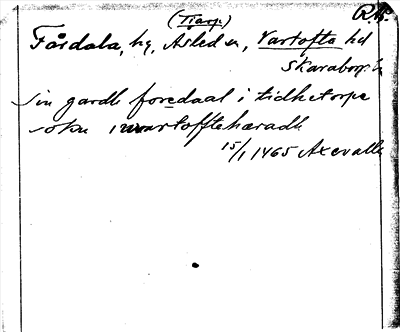 (Tiarp) RAp.
Fårdala, hg, Åsled sn, Vartofta hd
Skarabors. l.
sin gardh foredaal i tidhetorpe
sokn i wartoffthæradh
15/1 1465 Axevalla